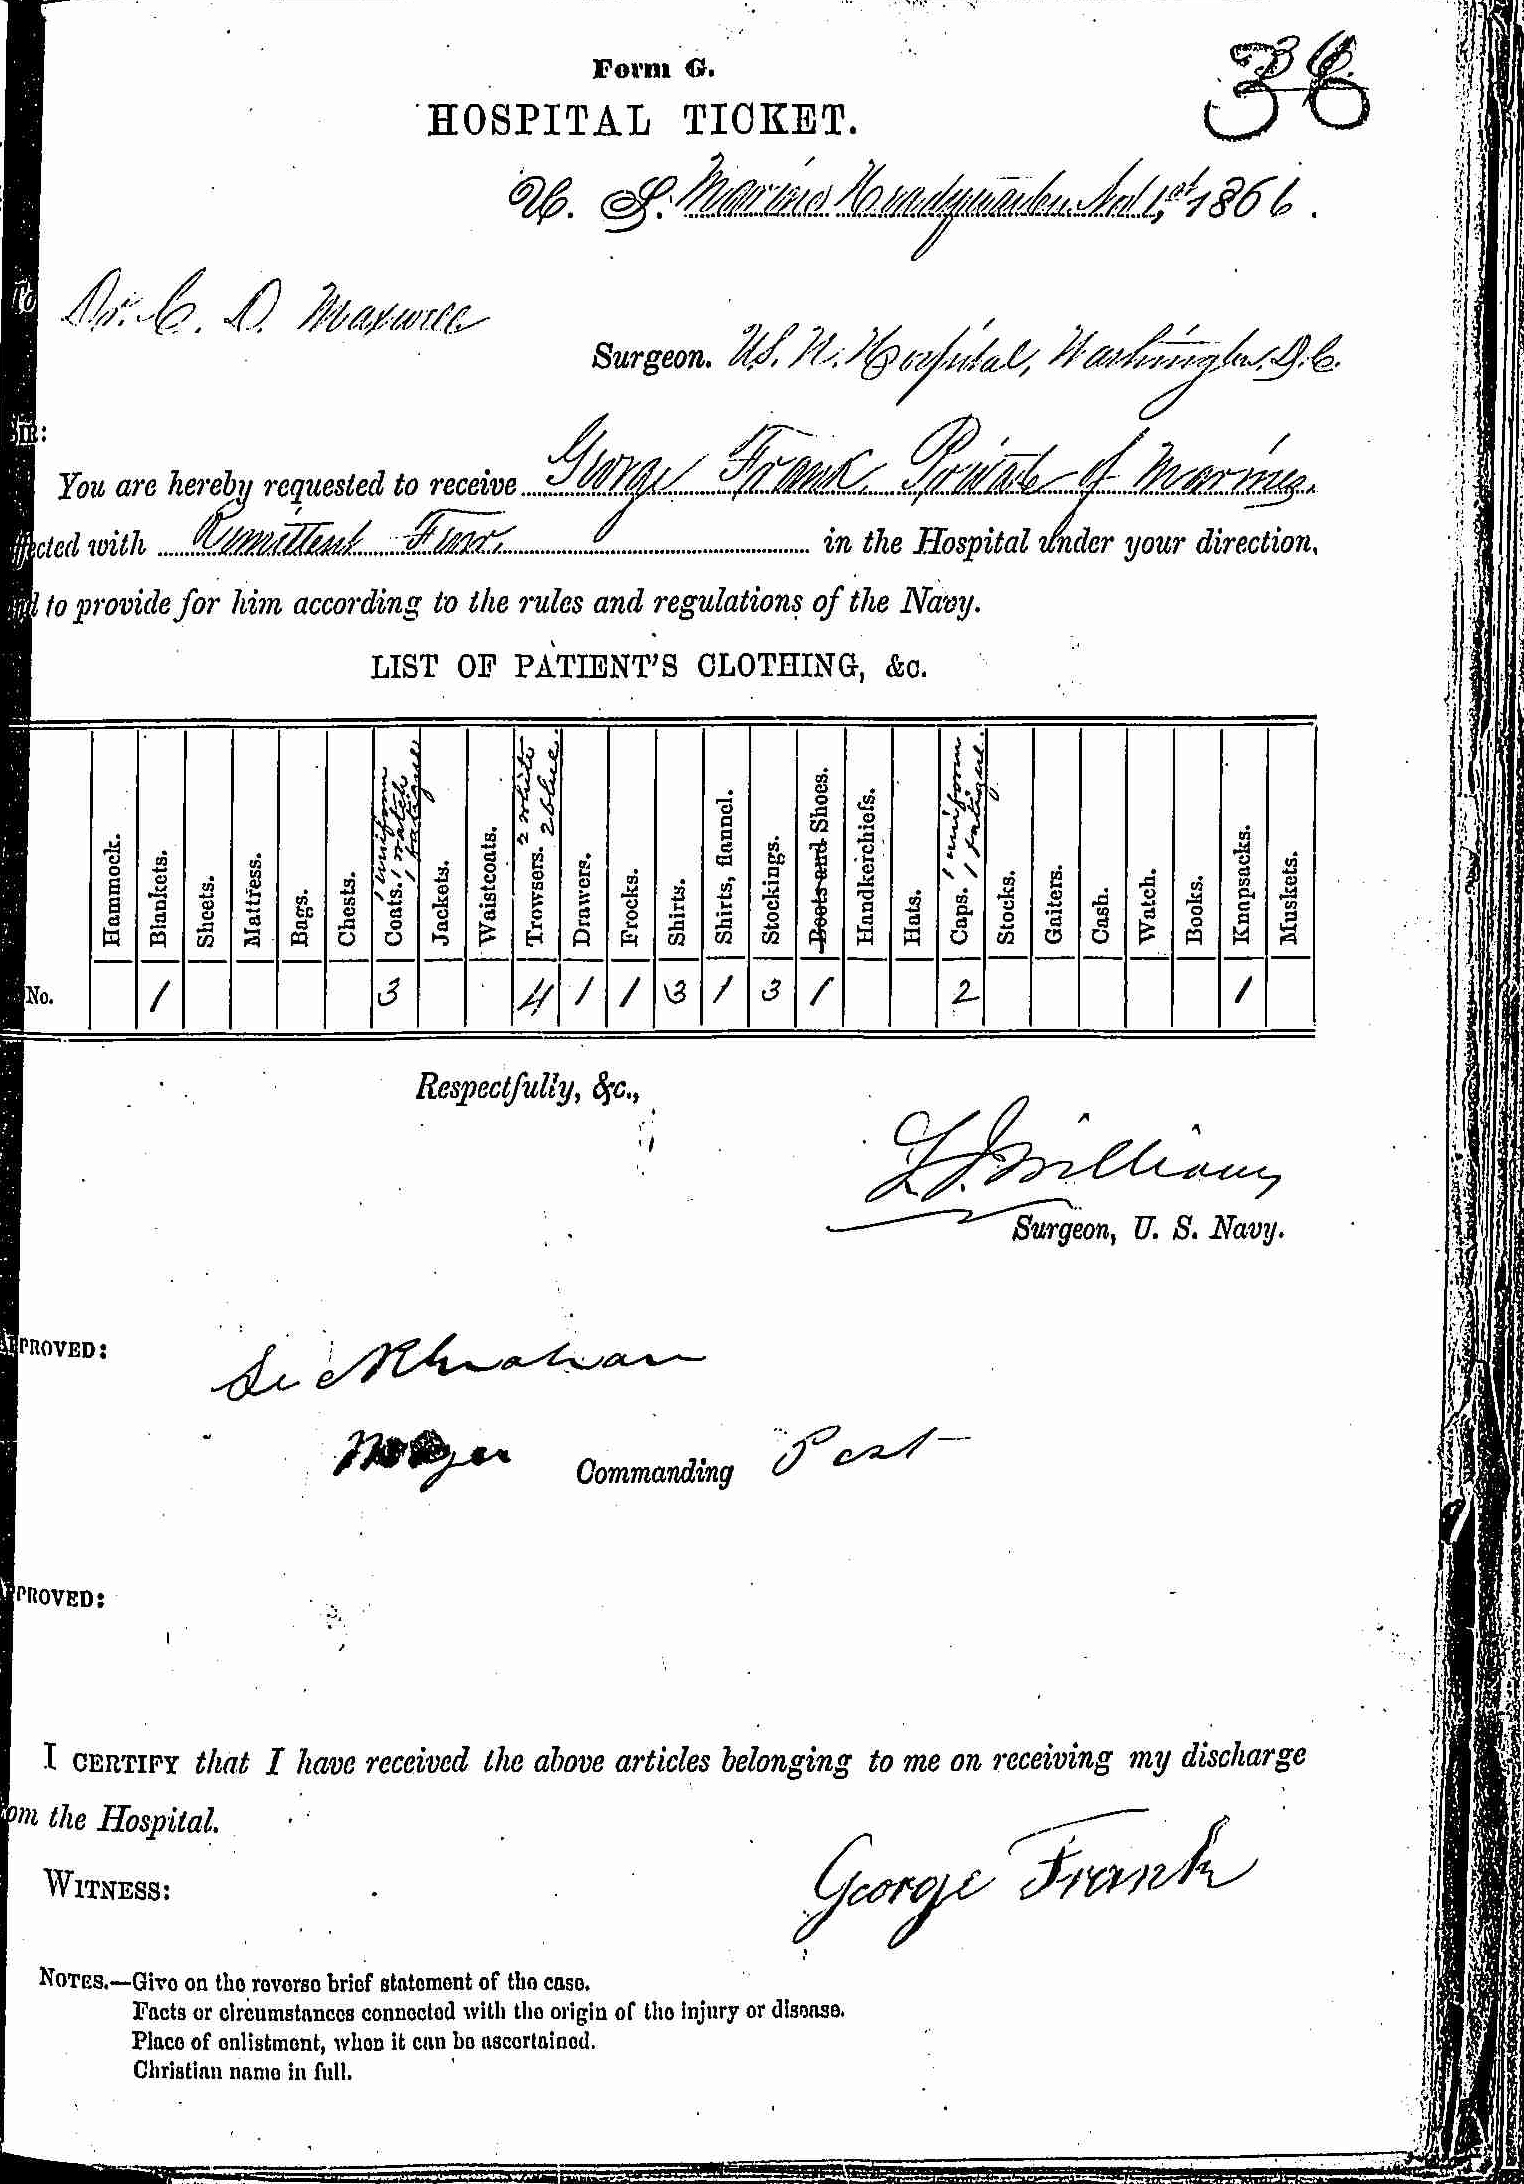 Form G.
38
HOSPITAL TICKET.
U. S. Marine Headquarters Nov 1st, 1866.
To
Dr. C. D. Maxwell
Surgeon. U.S. N. Hospital, Washington, D.C.
SIR:
You are hereby requested to receive George Frank, Private of Marines,
affected with Remittent Fever. in the Hospital under your direction,
and to provide for him according to the rules and regulations of the Navy.
LIST OF PATIENT'S CLOTHING, &c.
Hammock. Blankets. Sheets. Mattress. Bags. Chests. Coats. 1 uniform 1 watch 1 fatigue. Jackets. Waistcoats. Trowsers. 2 white 2 blue. Drawers. Frocks. Shirts. Shirts, flannel. Stockings. Boots and Shoes. Handkerchiefs. Hats. Caps. 1 uniform 1 fatigue. Stocks. Gaiters. Cash. Watch. Books. Knapsacks. Muskets.
No. 1 3 4 1 1 3 1 3 1 2 1
Respectfully, &c.,
Williams
Surgeon, U. S. Navy.
APPROVED:
Major Commanding Post
APPROVED:
I CERTIFY that I have received the above articles belonging to me on receiving my discharge
from the Hospital.
WITNESS:
George Frank
NOTES.—Give on the reverse brief statement of the case.
Facts or circumstances connected with the origin of the injury or disease.
Place of enlistment, when it can be ascertained.
Christian name in full.